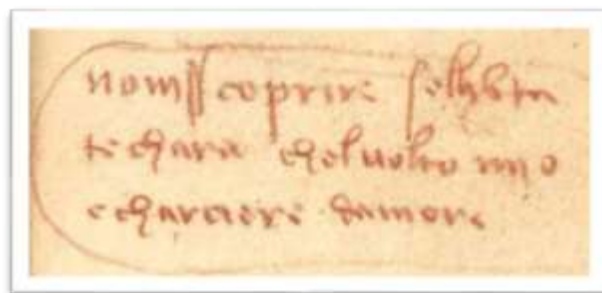 nonisscoprire selibta
te chara chel uolto mio
e charciere damore